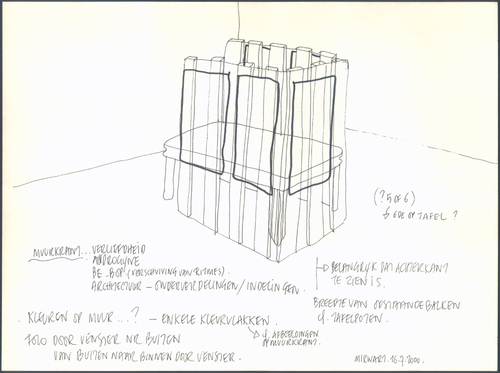 (? 5 OF 6)
↳ 6DE OP TAFEL ?
MUURKRANT... VERLIEFDHEID
ANDROGYNE
BE-BOP (VERSCHUIVING VAN RITMES).
ARCHITECTUUR - ONDERVERDELINGEN/INDELINGEN.
BELANGRIJK DAT ACHTERKANT
TE ZIEN IS.
BREEDTE VAN OPSTAANDE BALKEN
cf. TAFELPOTEN.
KLEUREN OP MUUR...? - ENKELE KLEURVLAKKEN.
cf. AFBEELDINGEN
OP MUURKRANT.
FOTO DOOR VENSTER NR BUITEN
VAN BUITEN NAAR BINNEN DOOR VENSTER.
MIRWART. 16.7.2000.